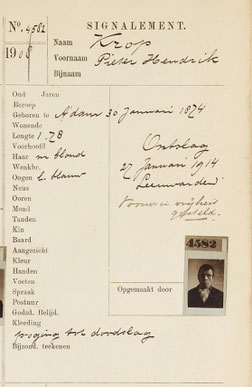 No. 4582
SIGNALEMENT.
1908
Naam Krop
Voornaam Pieter Hendrik
Bijnaam
Oud Jaren
Beroep
Geboren te A'dam 30 Januari 1874
Wonende
Lengte 1.78
Voorhoofd
Haar m blond
Wenkbr.
Oogen l. blauw
Neus
Ooren
Mond
Tanden
Kin
Baard
Aangezicht
Kleur
Handen
Voeten
Spraak
Postuur
Godsd. Belijd.
Kleeding
poging tot doodslag
Bijzond. teekenen
Ontslag
27 Januari 1914
Leeuwarden
Voorw. in vrijheid
gesteld.
4582
Opgemaakt door